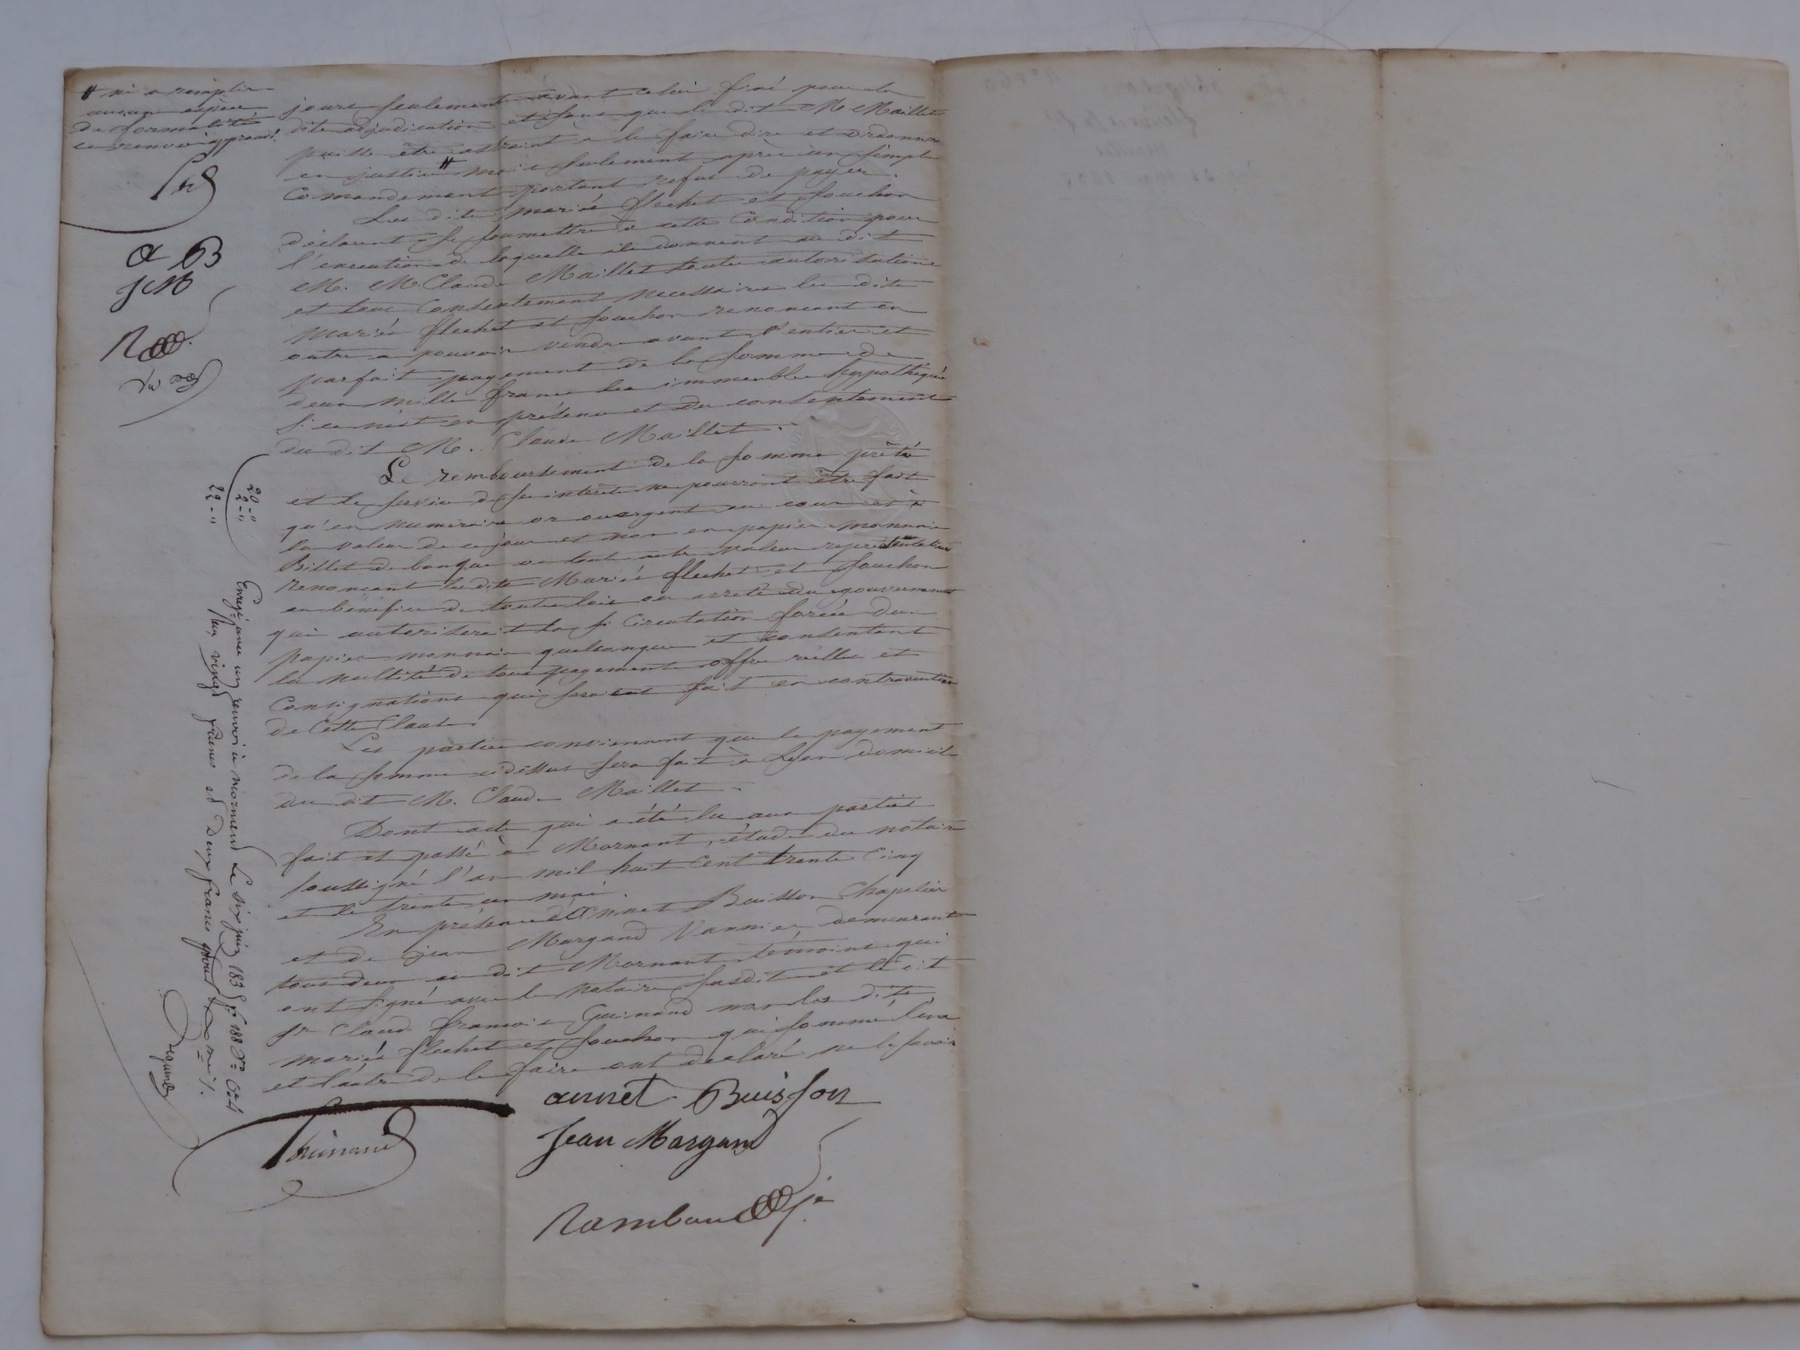 # ni a remplir
aucune espece
de formalité
ce renvoi approuvé
jours seulement avant celui fixé pour la
dite adjudication et sans que le dit M. Maillet
puisse être astraint à le faire dire et ordonner
en justice # mais seulement après un simple
Commandement portant refus de payer.
Les dits mariés flechet et Souchon
déclarent se soumettre à cette Condition pour
l'execution de laquelle ils donnent au dit
M. Claude Maillet toute autorisation
et tout Consentement necessaires les dits
Mariés flechet et Souchon renoncent en
outre a pouvoir vendre avant l'entier et
parfait payement de la Somme de
deux Mille francs les immeubles hypothéqués
si ce n'est en présence et du consentement
du dit M. Claude Maillet.
Le remboursement de la somme prêtée
et le service de ses interets ne pourront être fait
qu'en numeraire or ou argent au cours et à
la valeur de ce jour et non en papier monnaie
Billet de banque ou toute autre valeur représentative
renoncant les dits Mariés flechet et Souchon
au bénéfice de toutes lois ou arrêté du gouvernement
qui autoriserait la Circulation forcée du
papier monnaie quelconque et consentant
la nullité de tous payements offres réelles et
Consignations qui seraient fait en contravention
de Cette Clause.
Les parties conviennent que le payement
de la somme cidessus sera fait à Lyon domicile
du dit M. Claude Maillet.
Dont acte qui a été lu aux parties
fait et passé à Mornant, étude du notaire
soussigné l'an mil huit Cent trente Cinq
et le trente un mai.
En présence d'Annet Buisson Chapelier
et de Jean Margand Vannier demeurant
tous deux au dit Mornant témoins qui
ont signé avec le notaire susdit et le dit
Sr Claude françois Guinand non les dits
mariés flechet et Souchon qui sommé l'un
et l'autre de le faire ont declaré ne le savoir
a B
J M
20 - "
2 - "
22 - "
Enregé avec un renvoi à mornant Le six juin 1835 f° 188
Reçu vingt francs et deux francs
annet Buisson
Jean Margand
Guinand
Rambaud